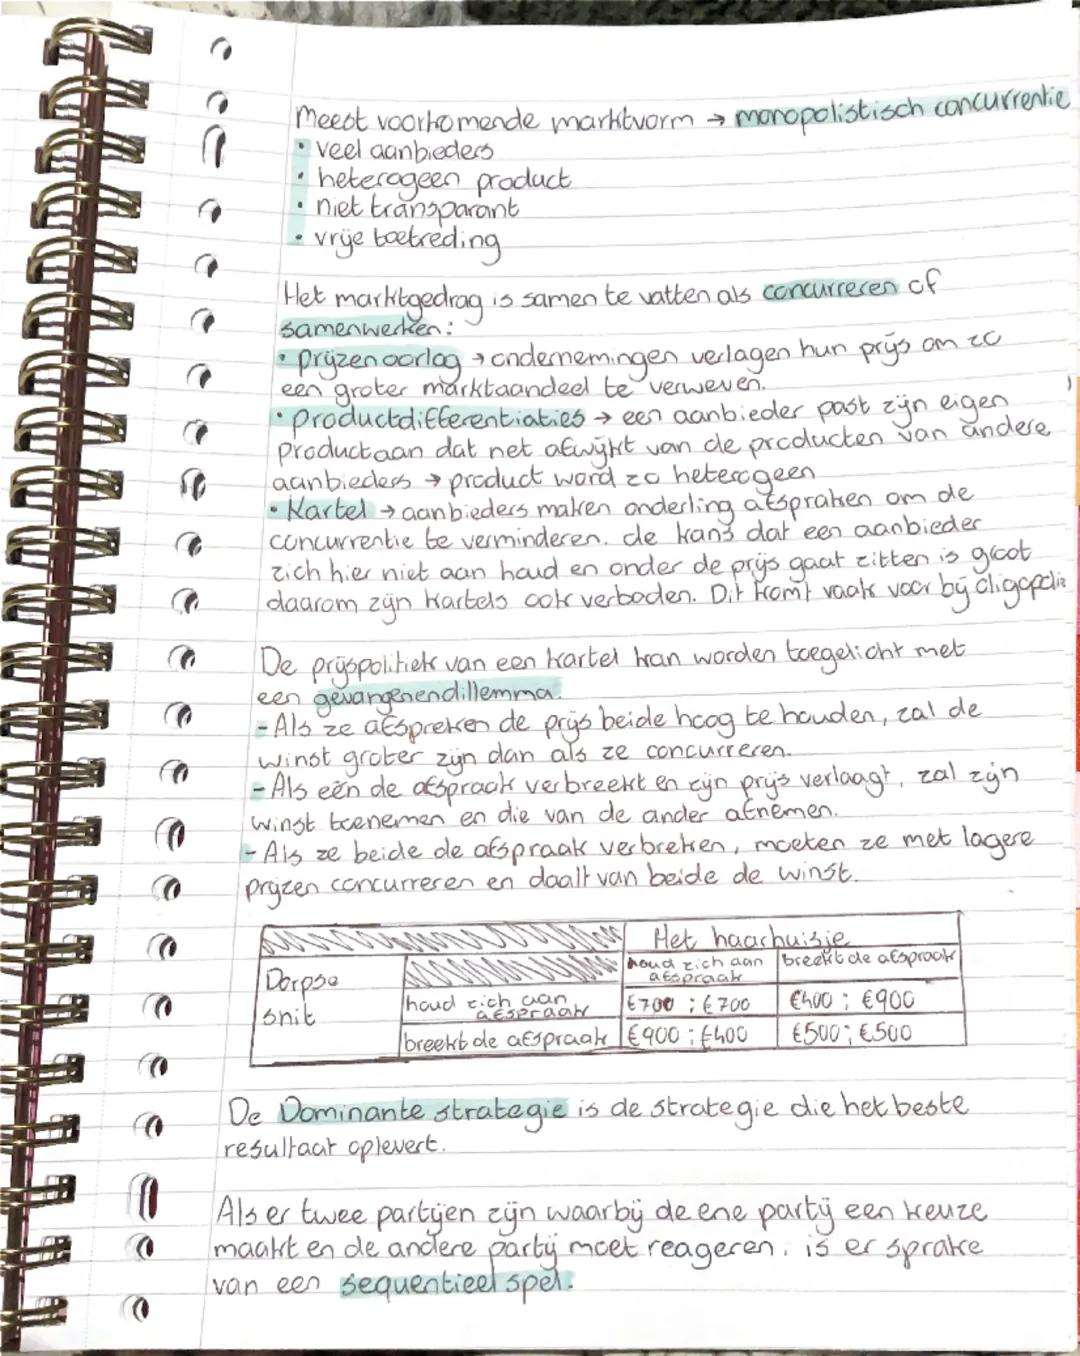 Meest voorkomende marktvorm → monopolistisch concurrentie
• veel aanbieders
• heterogeen product
• niet transparant
• vrije toetreding
Het marktgedrag is samen te vatten als concurreren of
samenwerken:
• prijzenoorlog → ondernemingen verlagen hun prijs om zo
een groter marktaandeel te verweven.
• productdifferentiaties → een aanbieder past zijn eigen
product aan dat net afwijkt van de producten van andere
aanbieders → product word zo heterogeen
• Kartel → aanbieders maken onderling afspraken om de
concurrentie te verminderen. de kans dat een aanbieder
zich hier niet aan houd en onder de prijs gaat zitten is groot
daarom zijn kartels ook verboden. Dit komt vaak voor bij oligopolie
De prijspolitiek van een kartel kan worden toegelicht met
een gevangenendillemma.
- Als ze afspreken de prijs beide hoog te houden, zal de
winst groter zijn dan als ze concurreren.
- Als eén de afspraak verbreekt en zijn prijs verlaagt, zal zijn
winst toenemen en die van de ander afnemen.
- Als ze beide de afspraak verbreken, moeten ze met lagere
prijzen concurreren en daalt van beide de winst.
Het haarhuisje
Dorpse snit
houd zich aan afspraak
breekt de afspraak
houd zich aan afspraak
€700 ; €700
€400 ; €900
breekt de afspraak
€900 ; €400
€500 ; €500
De Dominante strategie is de strategie die het beste
resultaat oplevert.
Als er twee partijen zijn waarbij de ene partij een keuze
maakt en de andere partij moet reageren, is er sprake
van een sequentieel spel.